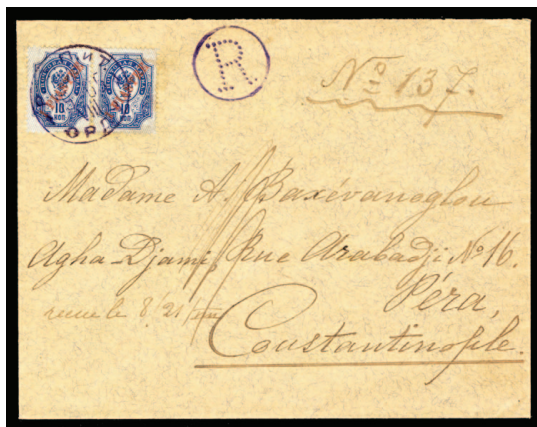 10
КОП
10
КОП
ОРД
R
Nº 137.
Madame A. Baxévanoglou
Agha-Djami, Rue Arabadji Nº 16.
Péra,
reçue le 8/21/VIII
Constantinople.